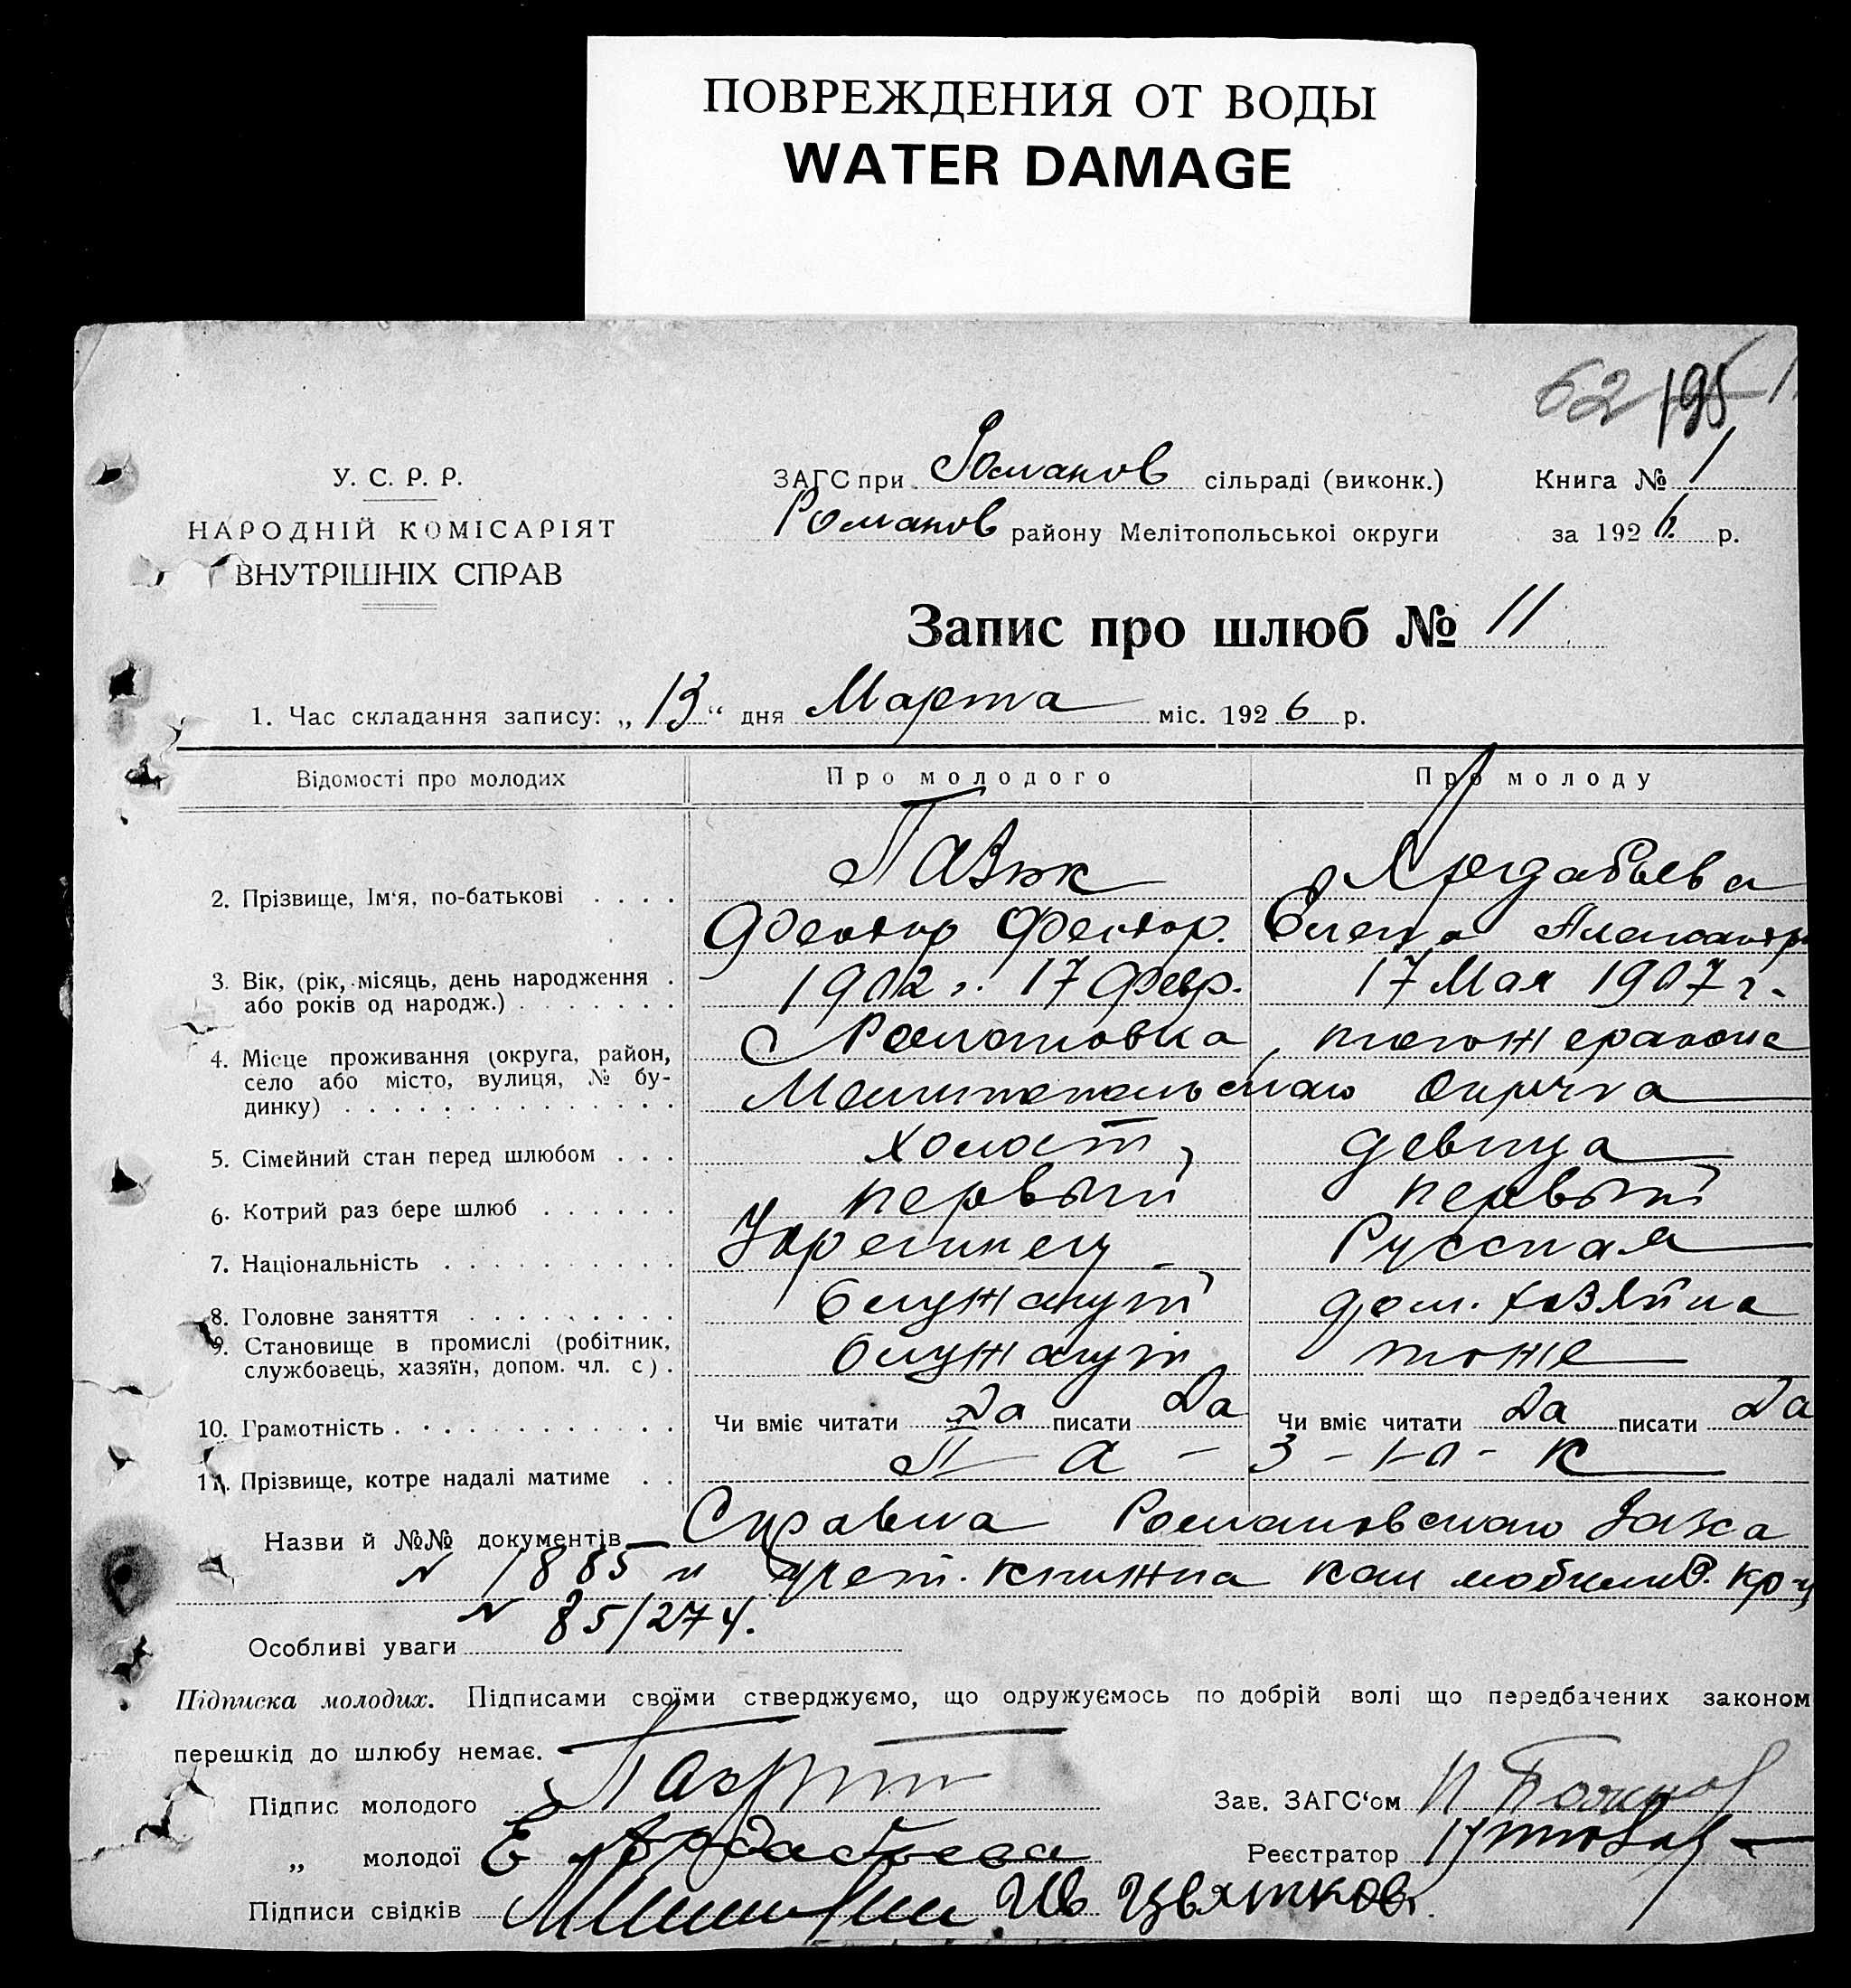 ПОВРЕЖДЕНИЯ ОТ ВОДЫ
WATER DAMAGE
62 195
У. С. Р. Р.
НАРОДНІЙ КОМІСАРІЯТ
ВНУТРІШНІХ СПРАВ
ЗАГС при Романов сільраді (виконк.)
Романов району Мелітопольської округи
Книга № 1
за 1926 р.
Запис про шлюб № 11
1. Час складання запису: „13“ дня Марта міс. 1926 р.
Відомості про молодих Про молодого Про молоду
2. Прізвище, Ім'я, по-батькові . . . . Пазюк Ардабьева
Феоктор. Елена Александр
3. Вік, (рік, місяць, день народження . 1902 г. 17 Февр. 17 Мая 1907 г.
або років од народж.) . . . . . . .
4. Місце проживання (округа, район, С Романовка, тогоже района
село або місто, вулиця, № бу- Мелитопольскаго Округа
динку) . . . . . . . . . . . . . .
5. Сімейний стан перед шлюбом . . . холост, девица
6. Котрий раз бере шлюб . . . . . . первый первый
7. Національність . . . . . . . . . . Украинец Русская
8. Головне заняття . . . . . . . . . Служащий дом. хозяйка
9. Становище в промислі (робітник, служащий тоже
службовець, хазяїн, допом. чл. с) .
10. Грамотність . . . . . . . . . . . . Чи вміє читати Да писати Да Чи вміє читати Да писати Да
11. Прізвище, котре надалі матиме . . П - а - з - ю - к
Назви й №№ документів Справка Романовского Загса
№ 1885 и учет. книжка
№ 85/274.
Особливі уваги
Підписка молодих. Підписами своїми стверджуємо, що одружуємось по добрій волі що передбачених законом
перешкід до шлюбу немає.
Підпис молодого
Зав. ЗАГС'ом
„ молодої Е Ардабьева
Реєстратор
Підписи свідків Ив Цвятков.